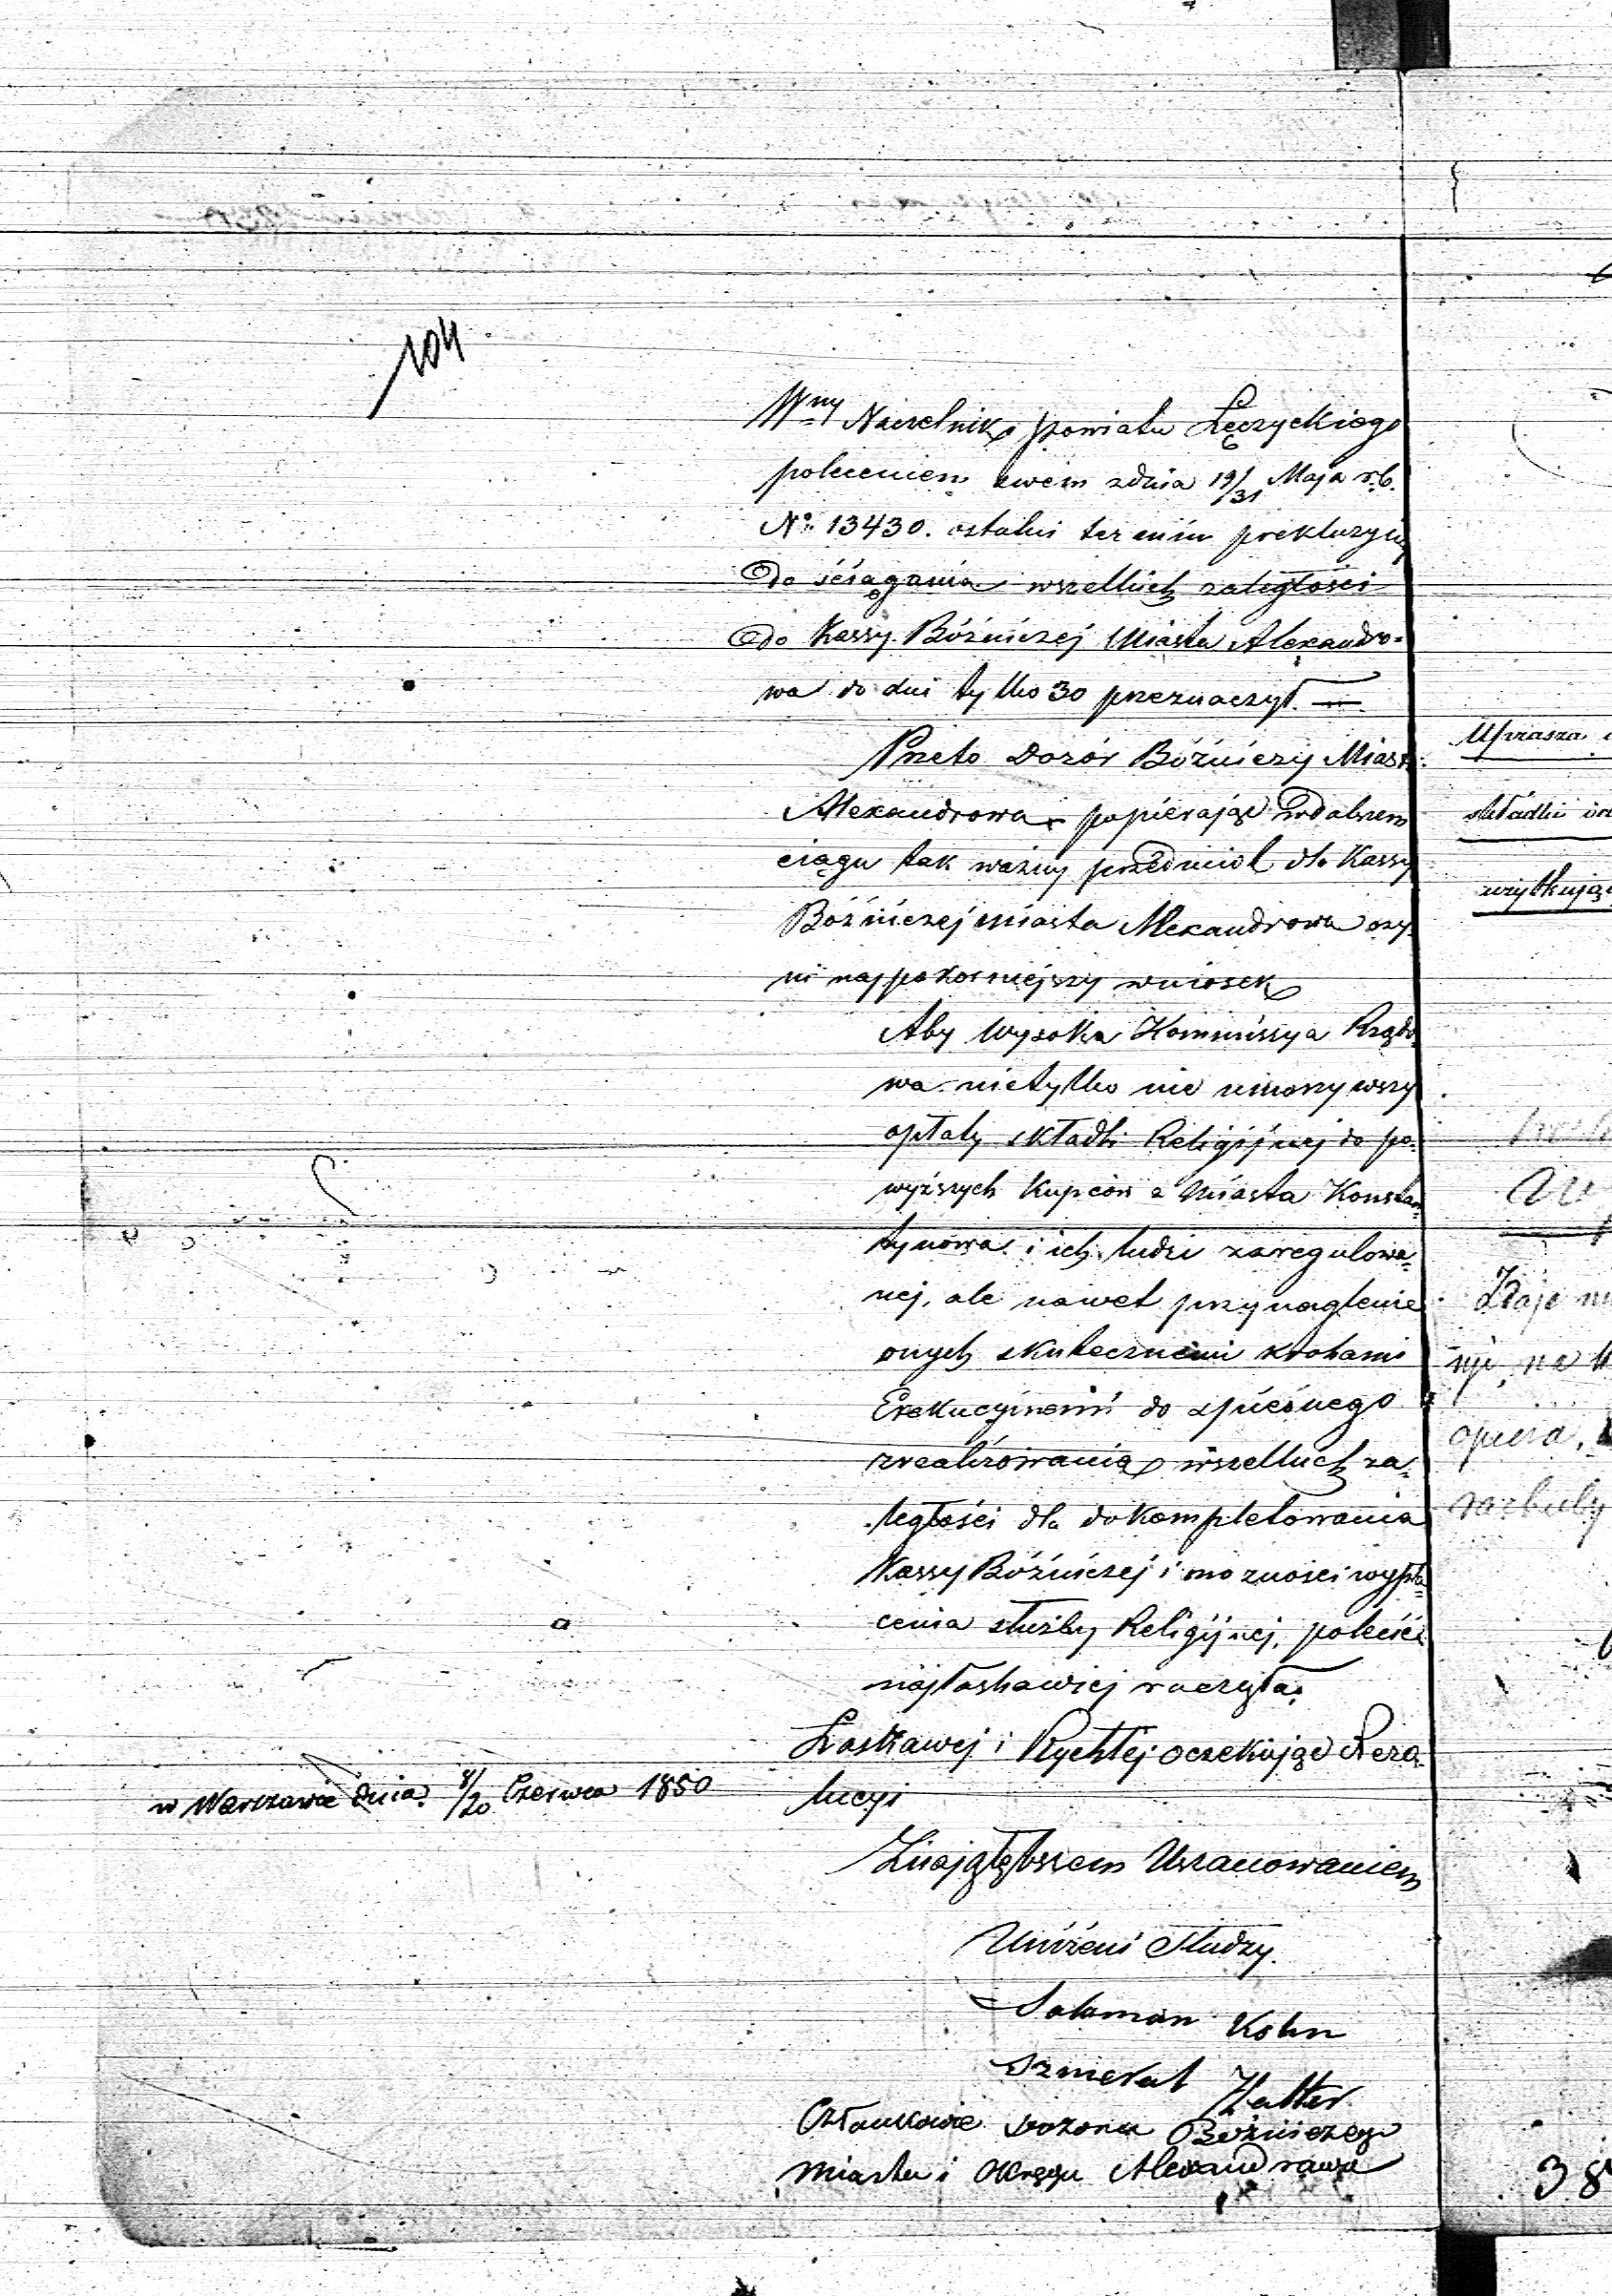 104
Wny Naczelnik powiatu Łęczyckiego
poleceniem swem zdnia 19/31 Maja r.b.
No 13430. ostatni termin prekluzyiny
do ściągania wszelkich zaległości
do Kassy Bóźniczej Miasta Alexandro=
wa do dni tylko 30 przeznaczył. —
Przeto Dozór Bóźniczy Miasta
Alexandrowa popierając wdalszem
ciągu tak ważny przedmiot dla Kassy
Bóźniczej miasta Alexandrowa czy-
ni najpokorniejszy wniosek
Aby Wysoka Kommissya Rządo-
wa nietylko nie umorzywszy
opłaty składki Religijnej do po-
wyższych Kupców z Miasta Konstan=
tynowa i ich ludzi zaregulowa=
nej, ale nawet przynaglenie
onych skutecznemi krokami
Exekucyinemi do spiesznego
zrealizowania wszelkich za=
ległości dla dokompletowania
Kassy Bóźniczej i możności wypła=
cenia służby Religijnej, polecić
najłaskawiej raczyła.
Łaskawej i Rychłej oczekując Rezo-
lucyi
w Warszawie dnia 8/20 Czerwca 1850
Znajgłębszem Uszanowaniem
Uniżeni Słudzy.
Salamon Kohn
Członkowie Dozoru Bóźniczego
Miasta i Okręgu Alexandrowa
Uprasza
składki
Zdaje
na
opiera,
38